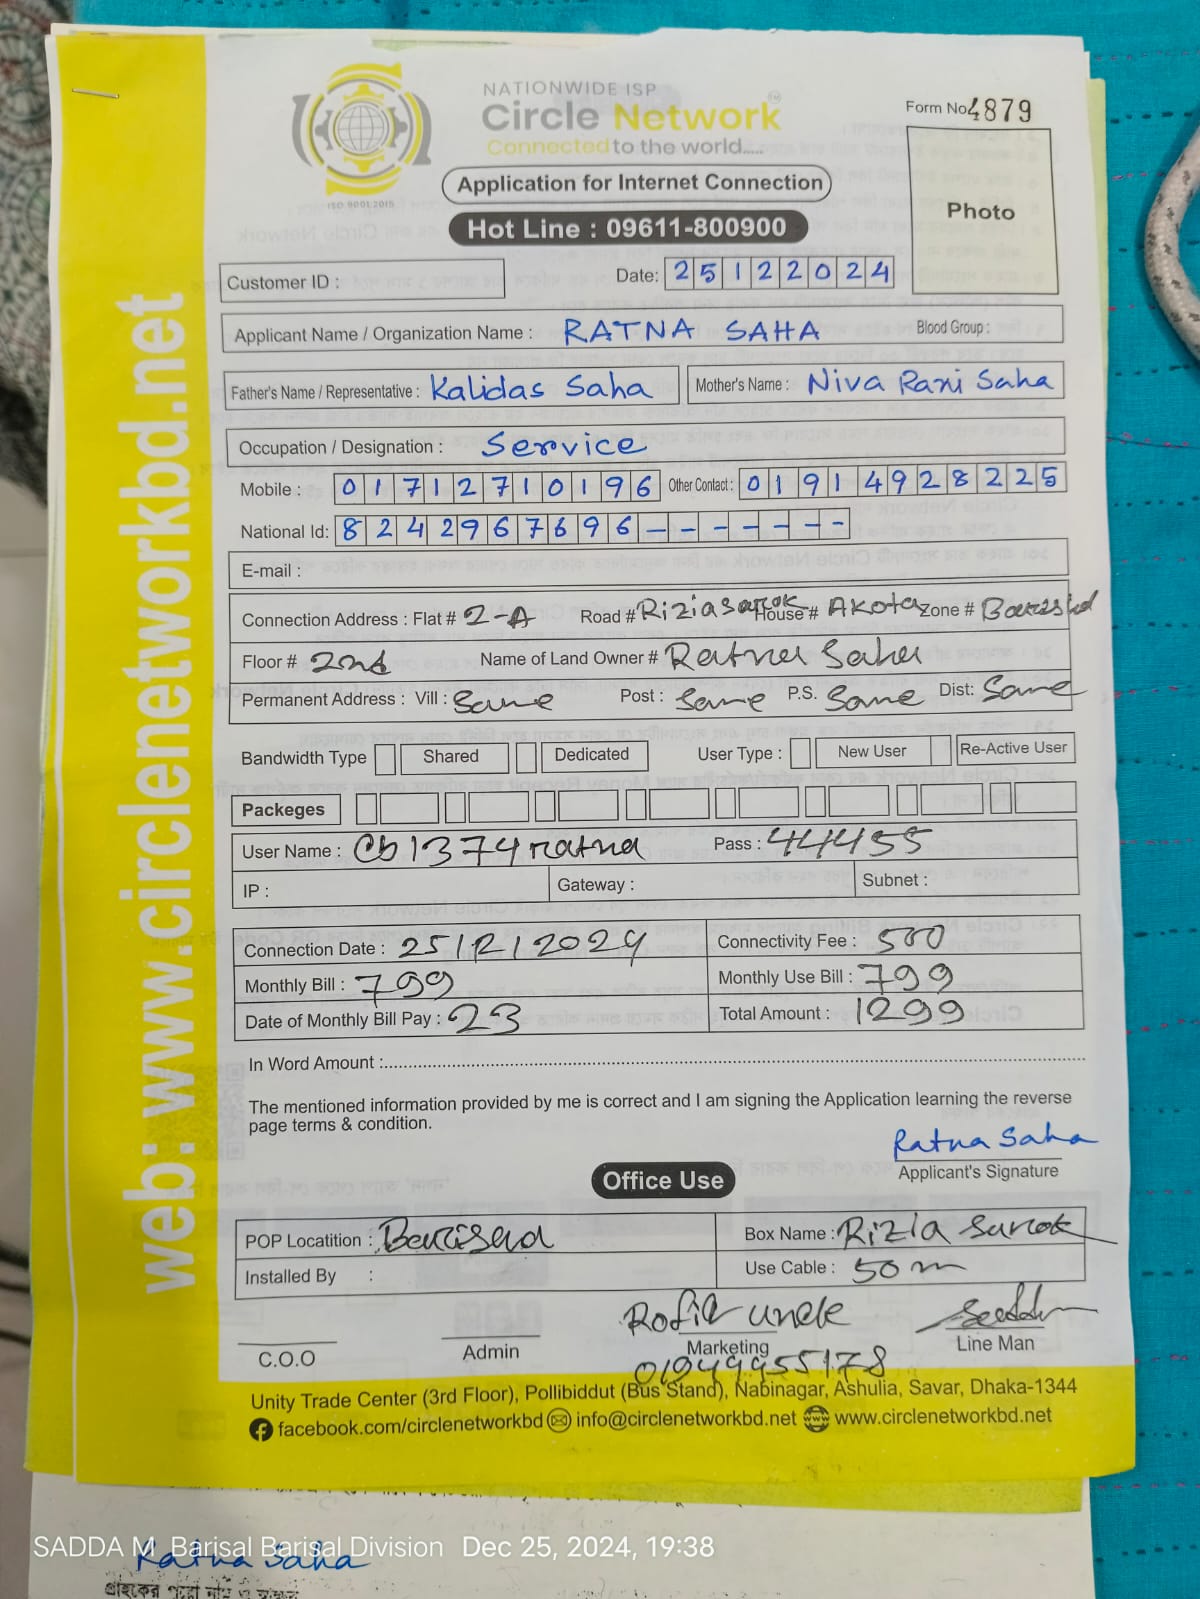 NATIONWIDE ISP
Circle Network TM
Connected to the world.....
ISO 9001:2015
Form No 4879
Application for Internet Connection
Hot Line : 09611-800900
Photo
Customer ID :
Date: 25122024
Applicant Name / Organization Name : RATNA SAHA Blood Group :
Father's Name / Representative : Kalidas Saha Mother's Name : Niva Rani Saha
Occupation / Designation : Service
Mobile : 01712710196 Other Contact : 01914928225
National Id: 8242967696--------
E-mail :
Connection Address : Flat # 2-A Road # Rizia Sarok House # Akota Zone # Barishd
Floor # 2nd Name of Land Owner # Ratna Saha
Permanent Address : Vill : Same Post : Same P.S. Same Dist: Same
Bandwidth Type Shared Dedicated User Type : New User Re-Active User
Packeges
User Name : Cb1374ratna Pass : 444455
IP : Gateway : Subnet :
Connection Date : 25/12/2024 Connectivity Fee : 500
Monthly Bill : 799 Monthly Use Bill : 799
Date of Monthly Bill Pay : 23 Total Amount : 1299
In Word Amount :
The mentioned information provided by me is correct and I am signing the Application learning the reverse
page terms & condition.
Ratna Saha
Applicant's Signature
Office Use
POP Locatition : Barisad Box Name : Rizia Sarok
Installed By : Use Cable : 50 m
Rofiq uncle
C.O.O Admin Marketing Line Man
01949955178
Unity Trade Center (3rd Floor), Pollibiddut (Bus Stand), Nabinagar, Ashulia, Savar, Dhaka-1344
facebook.com/circlenetworkbd info@circlenetworkbd.net www.circlenetworkbd.net
web: www.circlenetworkbd.net
SADDA M Barisal Barisal Division Dec 25, 2024, 19:38
Ratna Saha